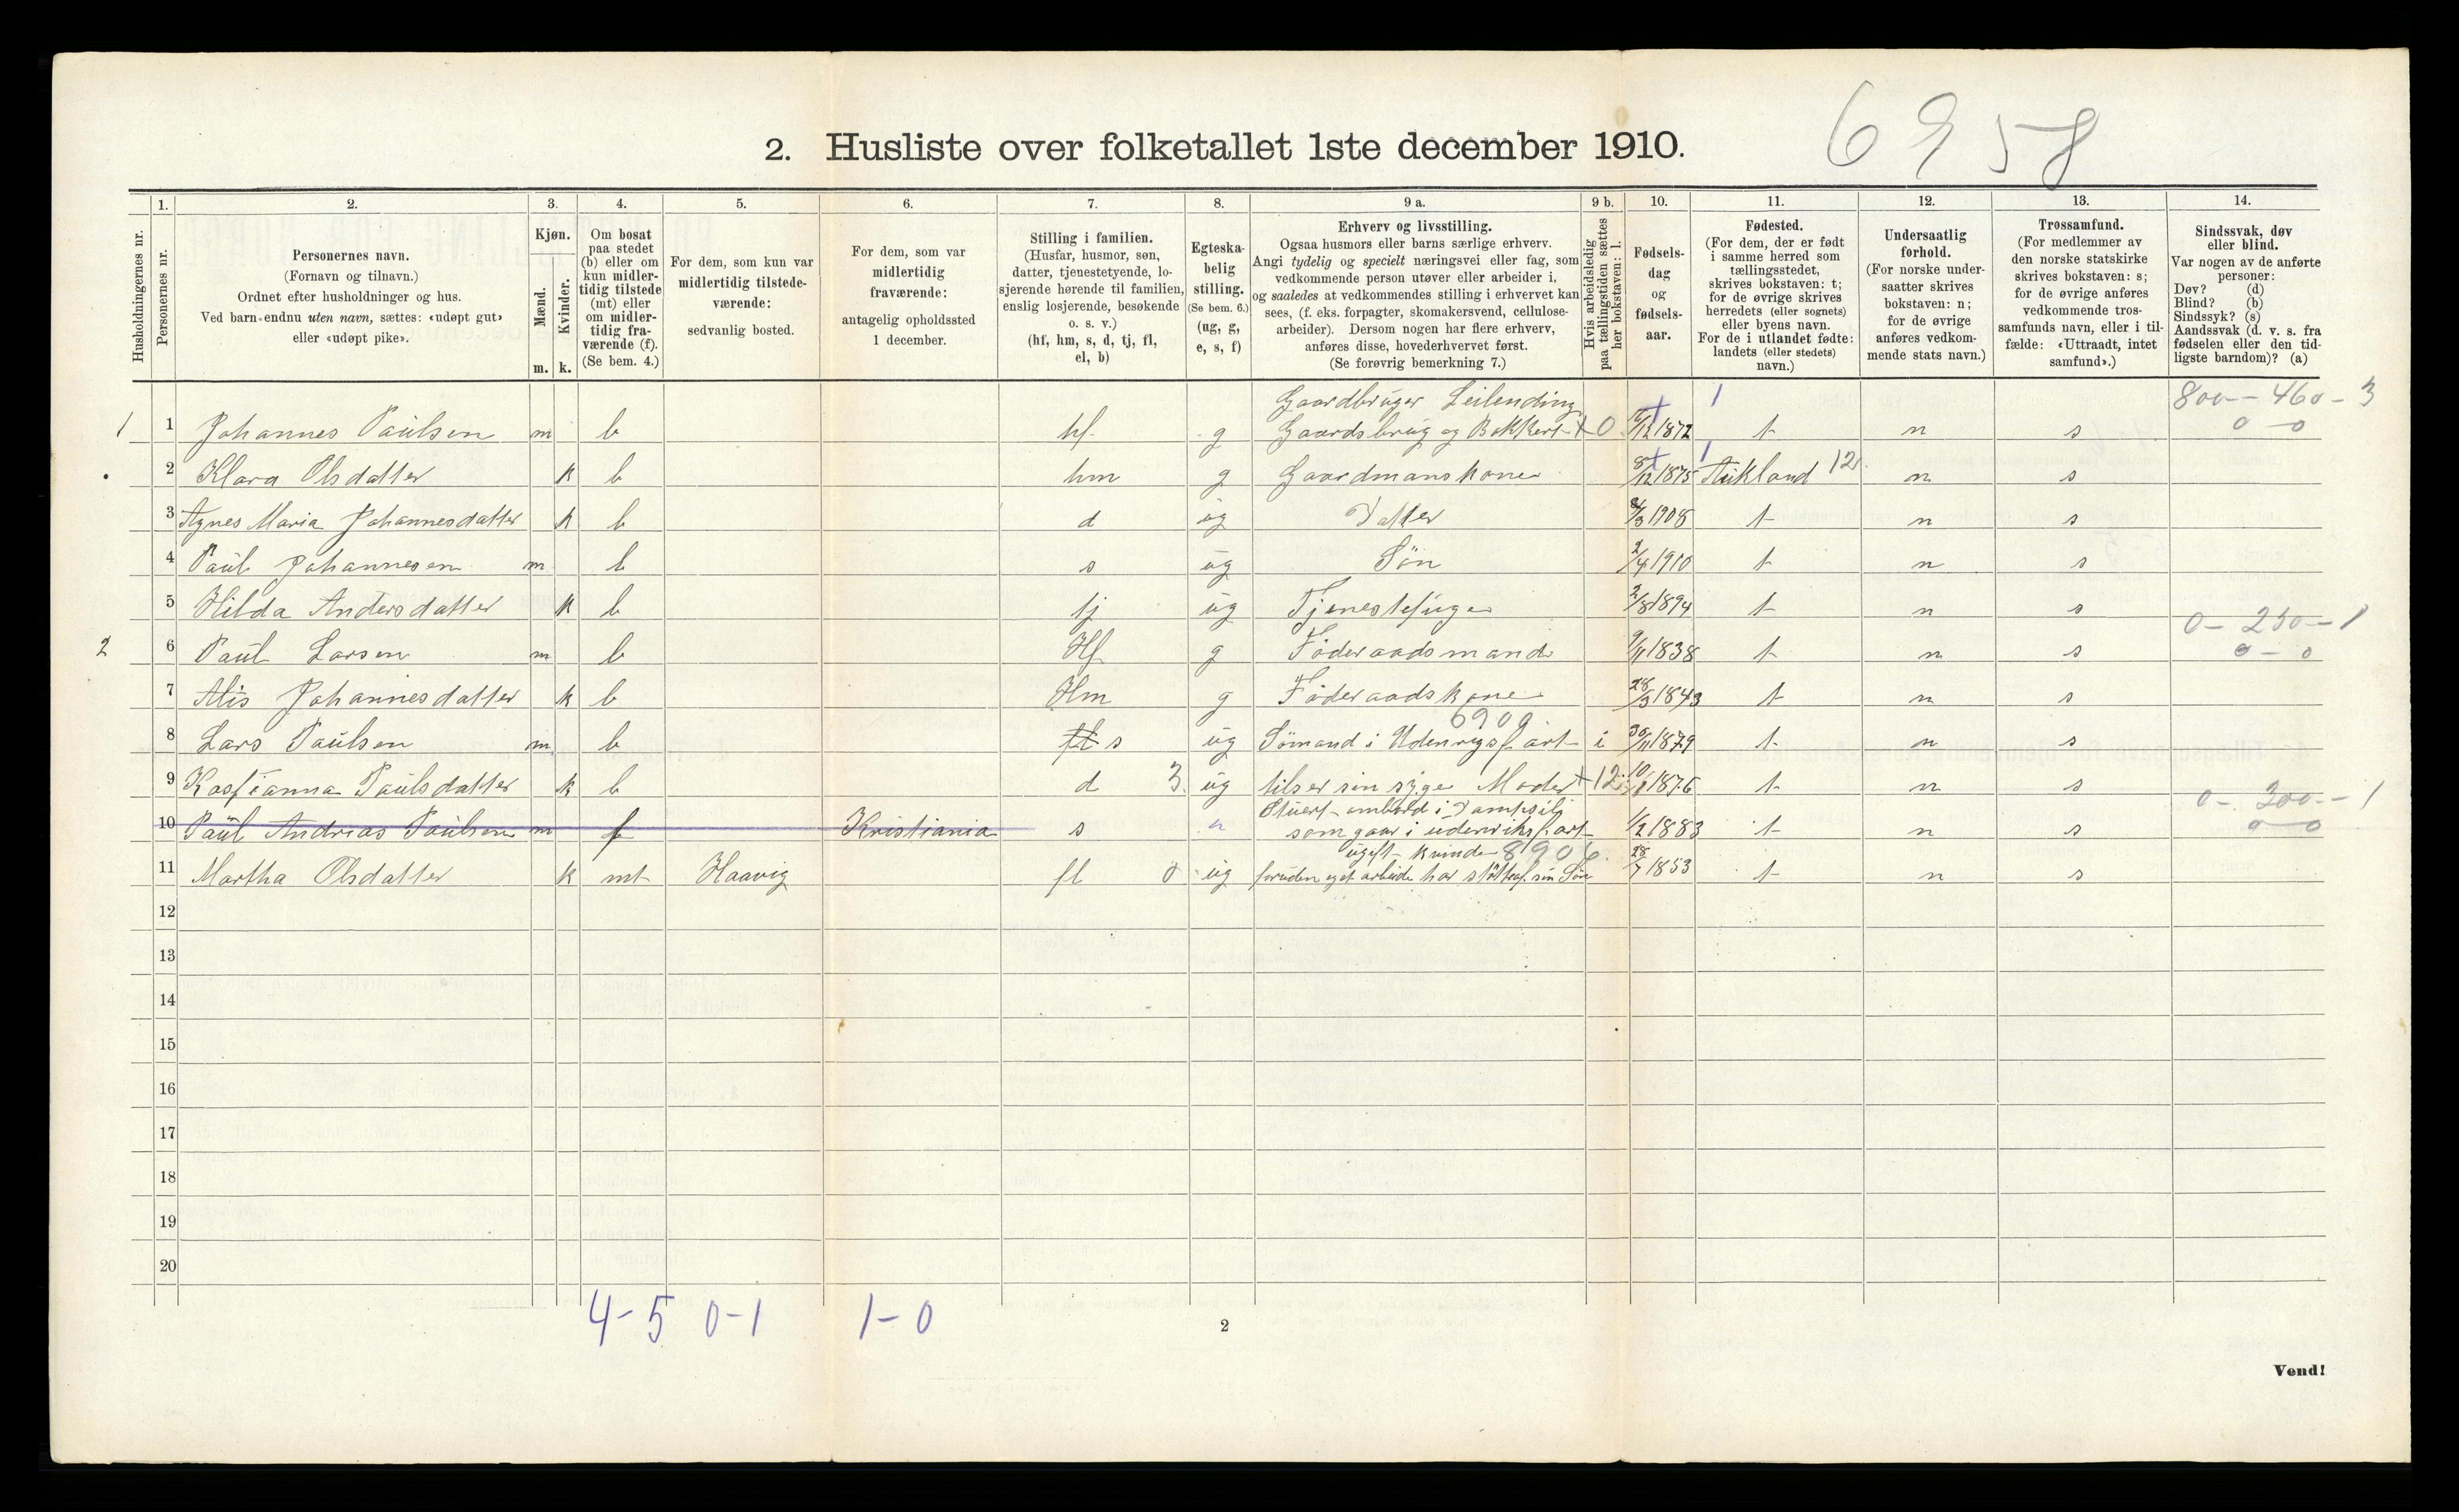 2. Husliste over folketallet 1ste december 1910.
6958
1.
2.
3.
4.
5.
6.
7.
8.
9 a.
9 b.
10.
11.
12.
13.
14.
Husholdningernes nr.
Personernes nr.
Personernes navn.
(Fornavn og tilnavn.)
Ordnet efter husholdninger og hus.
Ved barn endnu uten navn, sættes: «udøpt gut»
eller «udøpt pike».
Kjøn.
Mænd.
Kvinder.
m. k.
Om bosat
paa stedet
(b) eller om
kun midler-
tidig tilstede
(mt) eller
om midler-
tidig fra-
værende (f).
(Se bem. 4.)
For dem, som kun var
midlertidig tilstede-
værende:
sedvanlig bosted.
For dem, som var
midlertidig
fraværende:
antagelig opholdssted
1 december.
Stilling i familien.
(Husfar, husmor, søn,
datter, tjenestetyende, lo-
sjerende hørende til familien,
enslig losjerende, besøkende
o. s. v.)
(hf, hm, s, d, tj, fl,
el, b)
Egteska-
belig
stilling.
(Se bem. 6.)
(ug, g,
e, s, f)
Erhverv og livsstilling.
Ogsaa husmors eller barns særlige erhverv.
Angi tydelig og specielt næringsvei eller fag, som
vedkommende person utøver eller arbeider i,
og saaledes at vedkommendes stilling i erhvervet kan
sees, (f. eks. forpagter, skomakersvend, cellulose-
arbeider). Dersom nogen har flere erhverv,
anføres disse, hovederhvervet først.
(Se forøvrig bemerkning 7.)
Hvis arbeidsledig
paa tællingstiden sættes
her bokstaven: l.
Fødsels-
dag
og
fødsels-
aar.
Fødested.
(For dem, der er født
i samme herred som
tællingsstedet,
skrives bokstaven: t;
for de øvrige skrives
herredets (eller sognets)
eller byens navn.
For de i utlandet fødte:
landets (eller stedets)
navn.)
Undersaatlig
forhold.
(For norske under-
saatter skrives
bokstaven: n;
for de øvrige
anføres vedkom-
mende stats navn.)
Trossamfund.
(For medlemmer av
den norske statskirke
skrives bokstaven: s;
for de øvrige anføres
vedkommende tros-
samfunds navn, eller i til-
fælde: «Uttraadt, intet
samfund».)
Sindssvak, døv
eller blind.
Var nogen av de anførte
personer:
Døv? (d)
Blind? (b)
Sindssyk? (s)
Aandssvak (d. v. s. fra
fødselen eller den tid-
ligste barndom)? (a)
Gaardbruger Leilending 1 800 - 460 - 3
1 1 Johannes Paulsen m b hf g Gaardsbrug og + 0 /12 1872 t n s 0 0
2 Klara Olsdatter k b hm g Gaardmanskone 8/12 1875 Aukland 12 n s
3 Agnes Maria Johannesdatter k b d ug Datter 8/3 1908 t n s
4 Paul Johannesen m b s ug Søn 2/4 1910 t n s
5 Hilda Andersdatter k b tj ug Tjenestepige 2/8 1894 t n s
0 - 250 - 1
2 6 Paul Larsen m b Hf g Føderaadsmand 9/11 1838 t n s 0 - 0
7 Alis Johannesdatter k b Hm g Føderaadskone 28/3 1843 t n s
6909
8 Lars Paulsen m b s ug Sømand i Udenrigsfart i 30/11 1879 t n s
9 Kastianna Paulsdatter k b d 3 ug tilser sin syge Moder + 12 10/ 1876 t n s
Stuert ombord i Dampskib 0 - 300 - 1
10 Paul Andrias Paulsen m f Kristiania s som gaar i udenriksfart 1/2 1883 t n s 0 0
ugift kvinde 8906
11 Martha Olsdatter k mt Haavig fl 0 ug foruden eget arbeide har støtte af sin Søn 28/7 1853 t n s
12
13
14
15
16
17
18
19
20
4 - 5 0 - 1 1 - 0
2
Vend!